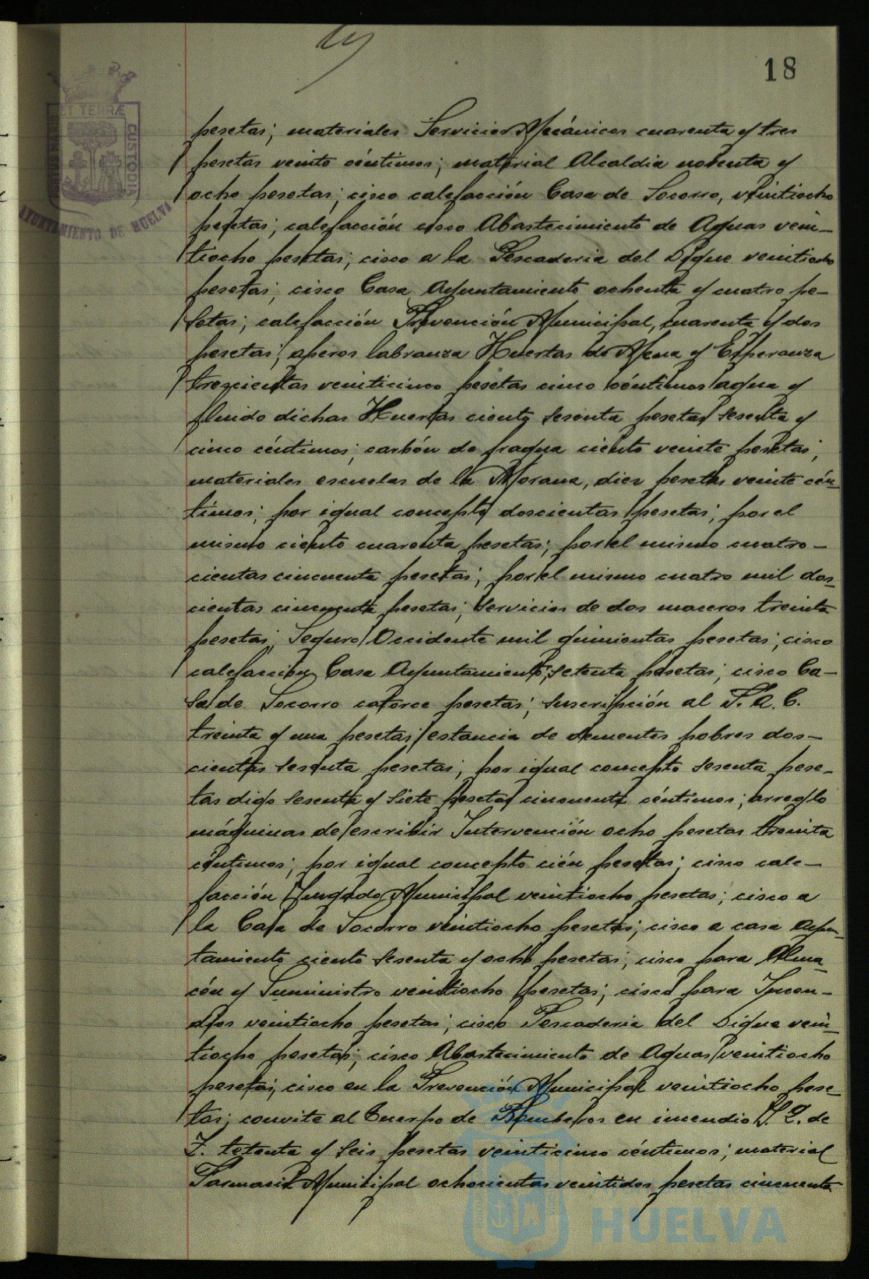 18
ET TERRÆ
CUSTODIA
AYUNTAMIENTO DE HUELVA
pesetas; materiales Servicios Mecánicos cuarenta y tres
pesetas veinte céntimos; material Alcaldia noventa y
ocho pesetas; cisco calefacción Casa de Socorro, veintiocho
pesetas; calefacción cisco Abastecimiento de Aguas vein-
tiocho pesetas; cisco a la Pescaderia del Dique veintiocho
pesetas; cisco Casa Ayuntamiento ochenta y cuatro pe-
setas; calefacción Prevención Municipal, cuarenta y dos
pesetas; aperos labranza Huertas de Mena y Esperanza
trescientas veinticinco pesetas cinco céntimos agua y
fluido dichas Huertas ciento sesenta pesetas sesenta y
cinco céntimos; carbón de fragua ciento veinte pesetas;
materiales escuelas de la Morana, diez pesetas veinte cén-
timos; por igual concepto doscientas pesetas; por el
mismo ciento cuarenta pesetas; por el mismo cuatro-
cientas cincuenta pesetas; por el mismo cuatro mil dos-
cientas cincuenta pesetas; servicios de dos maceros treinta
pesetas; Seguro Occidente mil quinientas pesetas; cisco
calefacción Casa Ayuntamiento setenta pesetas; cisco Ca-
sa de Socorro catorce pesetas; suscripción al F.A.C.
treinta y una pesetas; estancia de dementes pobres dos-
cientas sesenta pesetas; por igual concepto sesenta pese-
tas digo sesenta y siete pesetas cincuenta céntimos; arreglo
máquinas de escribir Intervención ocho pesetas treinta
céntimos; por igual concepto cién pesetas; cisco cale-
facción Juzgado Municipal veintiocho pesetas; cisco a
la Casa de Socorro veintiocho pesetas; cisco a casa Ayun-
tamiento ciento sesenta y ocho pesetas; cisco para Alma-
cén y Suministro veintiocho pesetas; cisco para Incen-
dios veintiocho pesetas; cisco Pescaderia del Dique vein-
tiocho pesetas; cisco Abastecimiento de Aguas veintiocho
pesetas; cisco en la Prevención Municipal veintiocho pese-
tas; convite al Cuerpo de Bomberos en incendio de
Z. setenta y seis pesetas veinticinco céntimos; material
Farmacia Municipal ochocientas veintidos pesetas cincuenta
HUELVA